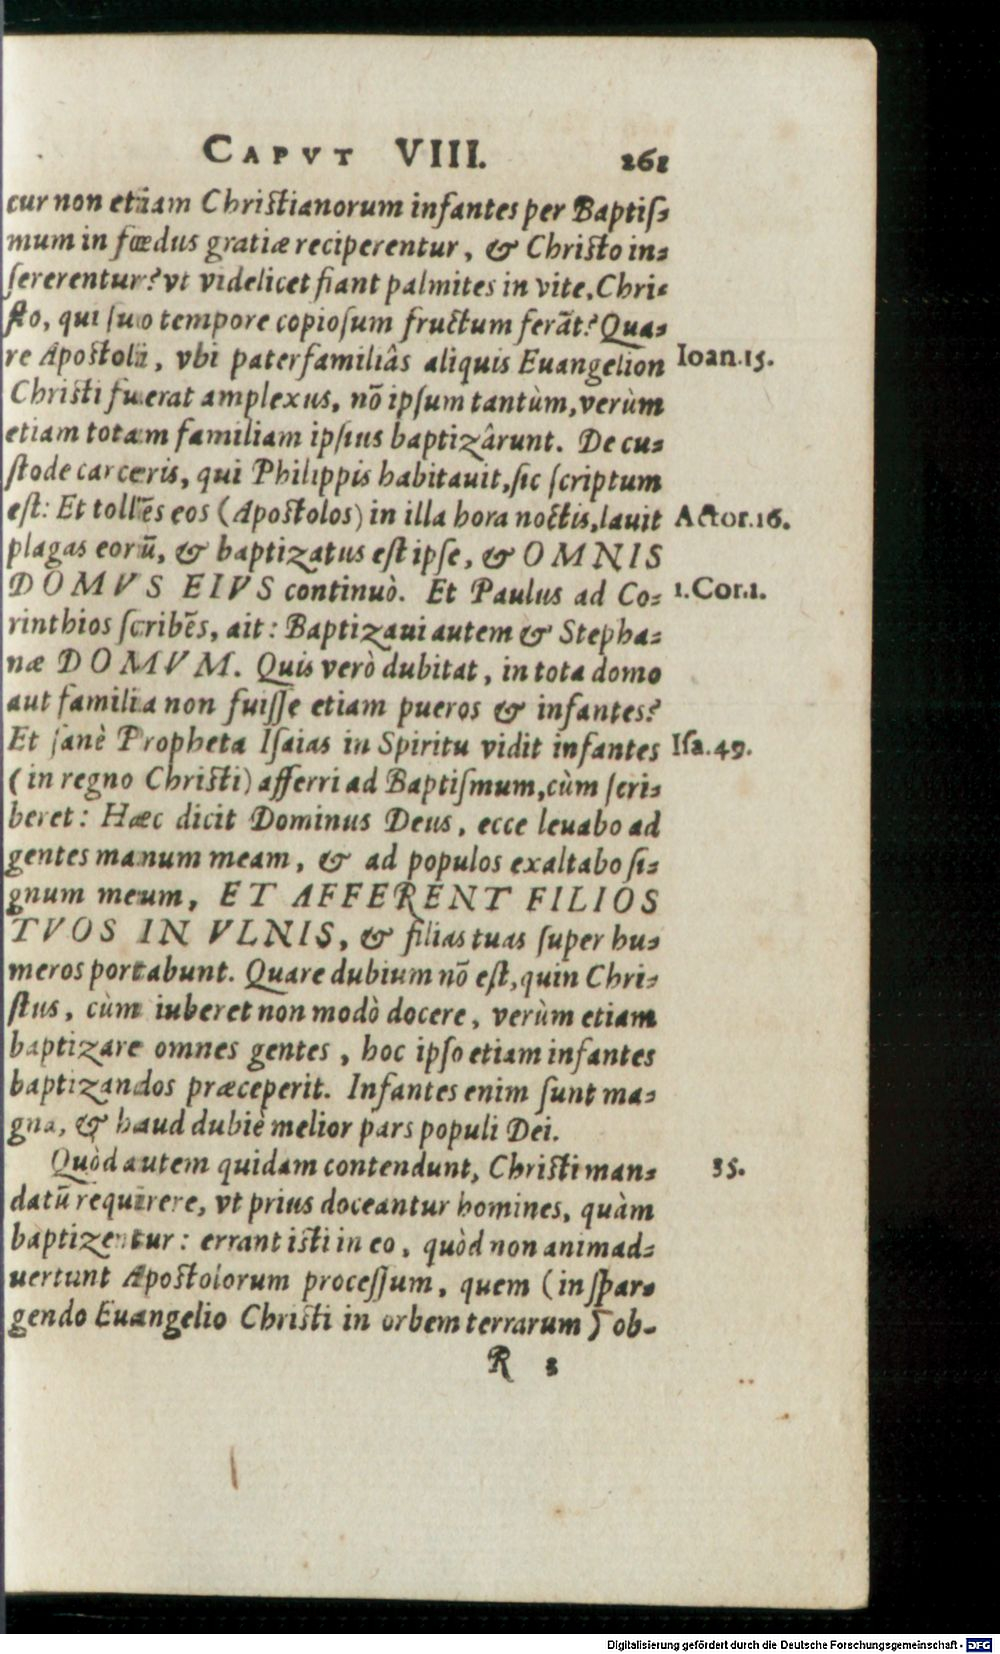 CAPVT VIII. 261
cur non etiam Christianorum infantes per Baptiſ-
mum in fœdus gratiæ reciperentur, & Christo in-
ſererentur? vt videlicet fiant palmites in vite, Chri-
ſto, qui ſuo tempore copioſum fructum ferãt? Qua-
re Apostoli, vbi paterfamiliâs aliquis Euangelion Ioan.15.
Christi fuerat amplexus, nõ ipſum tantùm, verùm
etiam totam familiam ipſius baptizârunt. De cu-
ſtode carceris, qui Philippis habitauit, ſic ſcriptum
eſt: Et tollẽs eos (Apostolos) in illa hora noctis, lauit Actor.16.
plagas eorũ, & baptizatus eſt ipſe, & OMNIS
DOMVS EIVS continuò. Et Paulus ad Co- 1.Cor.1.
rinthios ſcribẽs, ait: Baptizaui autem & Stepha-
næ DOMVM. Quis verò dubitat, in tota domo
aut familia non fuiſſe etiam pueros & infantes?
Et ſanè Propheta Iſaias in Spiritu vidit infantes Iſa.49.
(in regno Christi) afferri ad Baptiſmum, cùm ſcri-
beret: Hæc dicit Dominus Deus, ecce leuabo ad
gentes manum meam, & ad populos exaltabo ſi-
gnum meum, ET AFFERENT FILIOS
TVOS IN VLNIS, & filias tuas ſuper hu-
meros portabunt. Quare dubium nõ eſt, quin Chri-
ſtus, cùm iuberet non modò docere, verùm etiam
baptizare omnes gentes, hoc ipſo etiam infantes
baptizandos præceperit. Infantes enim ſunt ma-
gna, & haud dubiè melior pars populi Dei.
Quòd autem quidam contendunt, Christi man- 35.
datũ requirere, vt prius doceantur homines, quàm
baptizentur: errant isti in eo, quòd non animad-
uertunt Apostolorum proceſſum, quem (in ſpar-
gendo Euangelio Christi in orbem terrarum) ob-
R 3
Digitalisierung gefördert durch die Deutsche Forschungsgemeinschaft - DFG